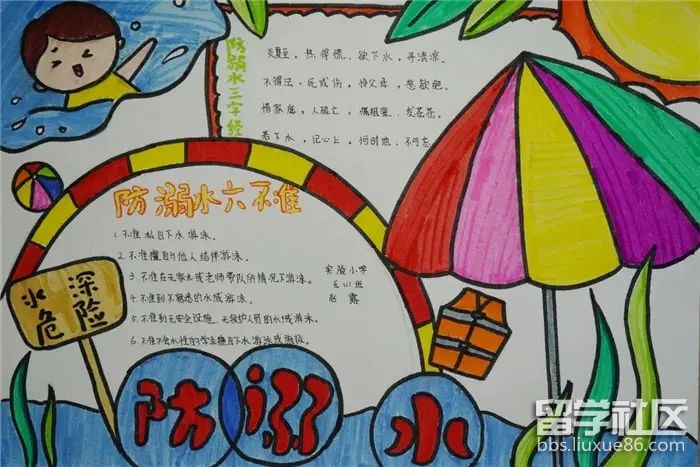 防溺水三字经
炎夏至，热得慌，欲下水，寻清凉。
不得法，死或伤，怜父母，悲欲绝。
惜家庭，人 亡，痛祖辈，发苍苍。
若下水，记心上，何时地，不可忘
防溺水六不准
1. 不准私自下水游泳。
2. 不准擅自与他人结伴游泳。
3. 不准在无家长或老师带队的情况下游泳。
4. 不准到不熟悉的水域游泳。
5. 不准到无安全设施、无救护人员的水域游泳。
6. 不准不会水性的学生擅自下水游泳或施救。
实验小学
五(1)班
赵露
水深
危险
防溺水
留学社区
bbs.liuxue86.com